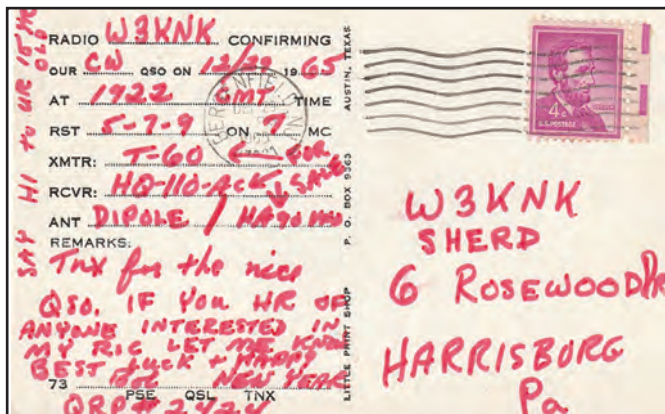 RADIO W3KNK CONFIRMING
OUR CW QSO ON 12/29 1965
AT 1922 GMT TIME
RST 5-7-9 ON 7 MC
XMTR: T-60 ← FOR
RCVR: HQ-110-AC ← SALE
ANT DIPOLE /
REMARKS:
Tnx for the nice
QSO. IF YOU HR OF
ANYONE INTERESTED IN
MY RIG LET ME KNOW
BEST LUCK + HAPPY
73 NEW YEAR
PSE QSL TNX
QRP # 2424
SAY HI to UR 15 YR
OLD
LITTLE PRINT SHOP P. O. BOX 9363 AUSTIN, TEXAS
4¢
U.S. POSTAGE
W3KNK
SHERD
6 ROSEWOOD
HARRISBURG
Pa